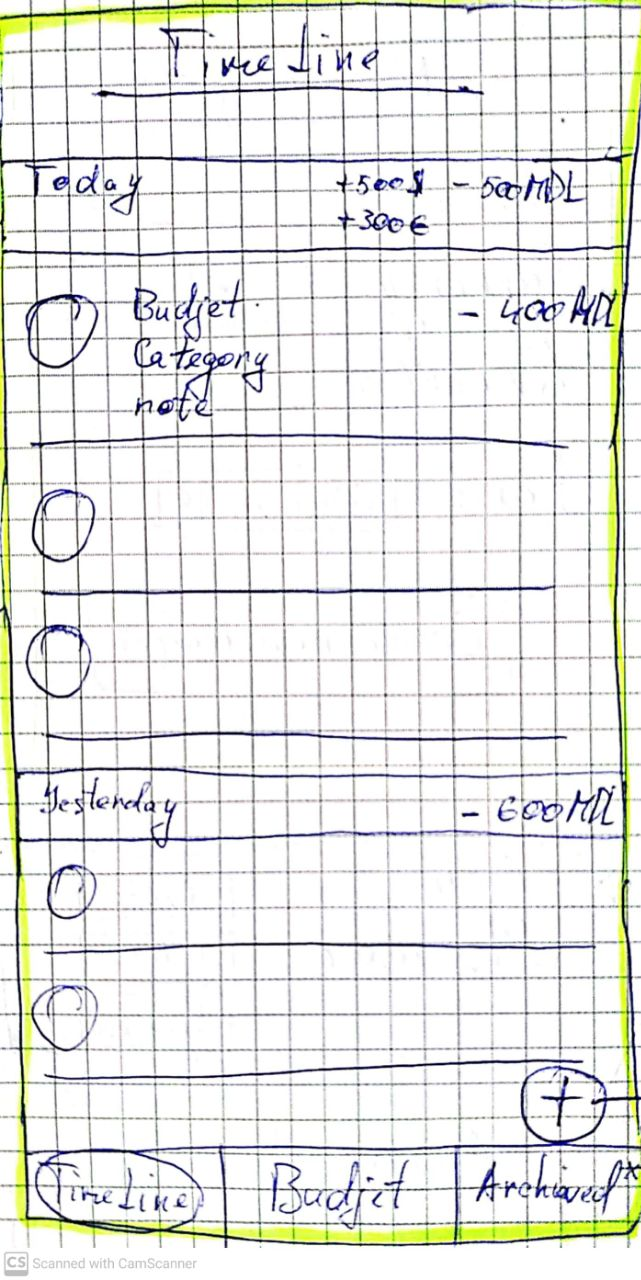 TimeLine
Today +500$ - 500MDL
+300€
Budjet
- 400 MDL
Category
note
Yesterday - 600 MDL
+
TimeLine Budjet Archived*
CS Scanned with CamScanner